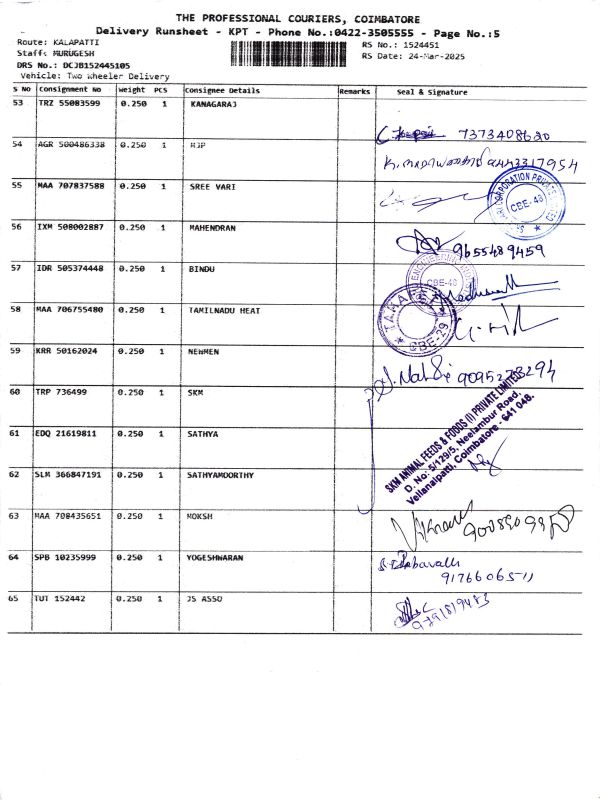 THE PROFESSIONAL COURIERS, COIMBATORE
Delivery Runsheet - KPT - Phone No.:0422-3505555 - Page No.:5
Route: KALAPATTI
RS No.: 1524451
Staff: MURUGESH
RS Date: 24-Mar-2025
DRS No.: DCJB152445105
Vehicle: Two Wheeler Delivery
S No Consignment No Weight PCS Consignee Details Remarks Seal & Signature
53 TRZ 55083599 0.250 1 KANAGARAJ
7373408620
54 AGR 500486338 0.250 1 HJP
9443317954
55 MAA 707837588 0.250 1 SREE VARI
CORPORATION PRIVATE
CBE-48
56 IXM 508002887 0.250 1 MAHENDRAN
9655489459
57 IDR 505374448 0.250 1 BINDU
CBE-48
58 MAA 706755480 0.250 1 TAMILNADU HEAT
CBE-29
59 KRR 50162024 0.250 1 NEWMEN
9095273294
60 TRP 736499 0.250 1 SKM
SKM ANIMAL FEEDS & FOODS (I) PRIVATE LIMITED
D. No: 5/129/5, Neelambur Road,
Vellanaipatti, Coimbatore - 641 048.
61 EDQ 21619811 0.250 1 SATHYA
62 SLM 366847191 0.250 1 SATHYAMOORTHY
63 MAA 708435651 0.250 1 MOKSH
64 SPB 10235999 0.250 1 YOGESHWARAN
9176606511
65 TUT 152442 0.250 1 JS ASSO
9791819483